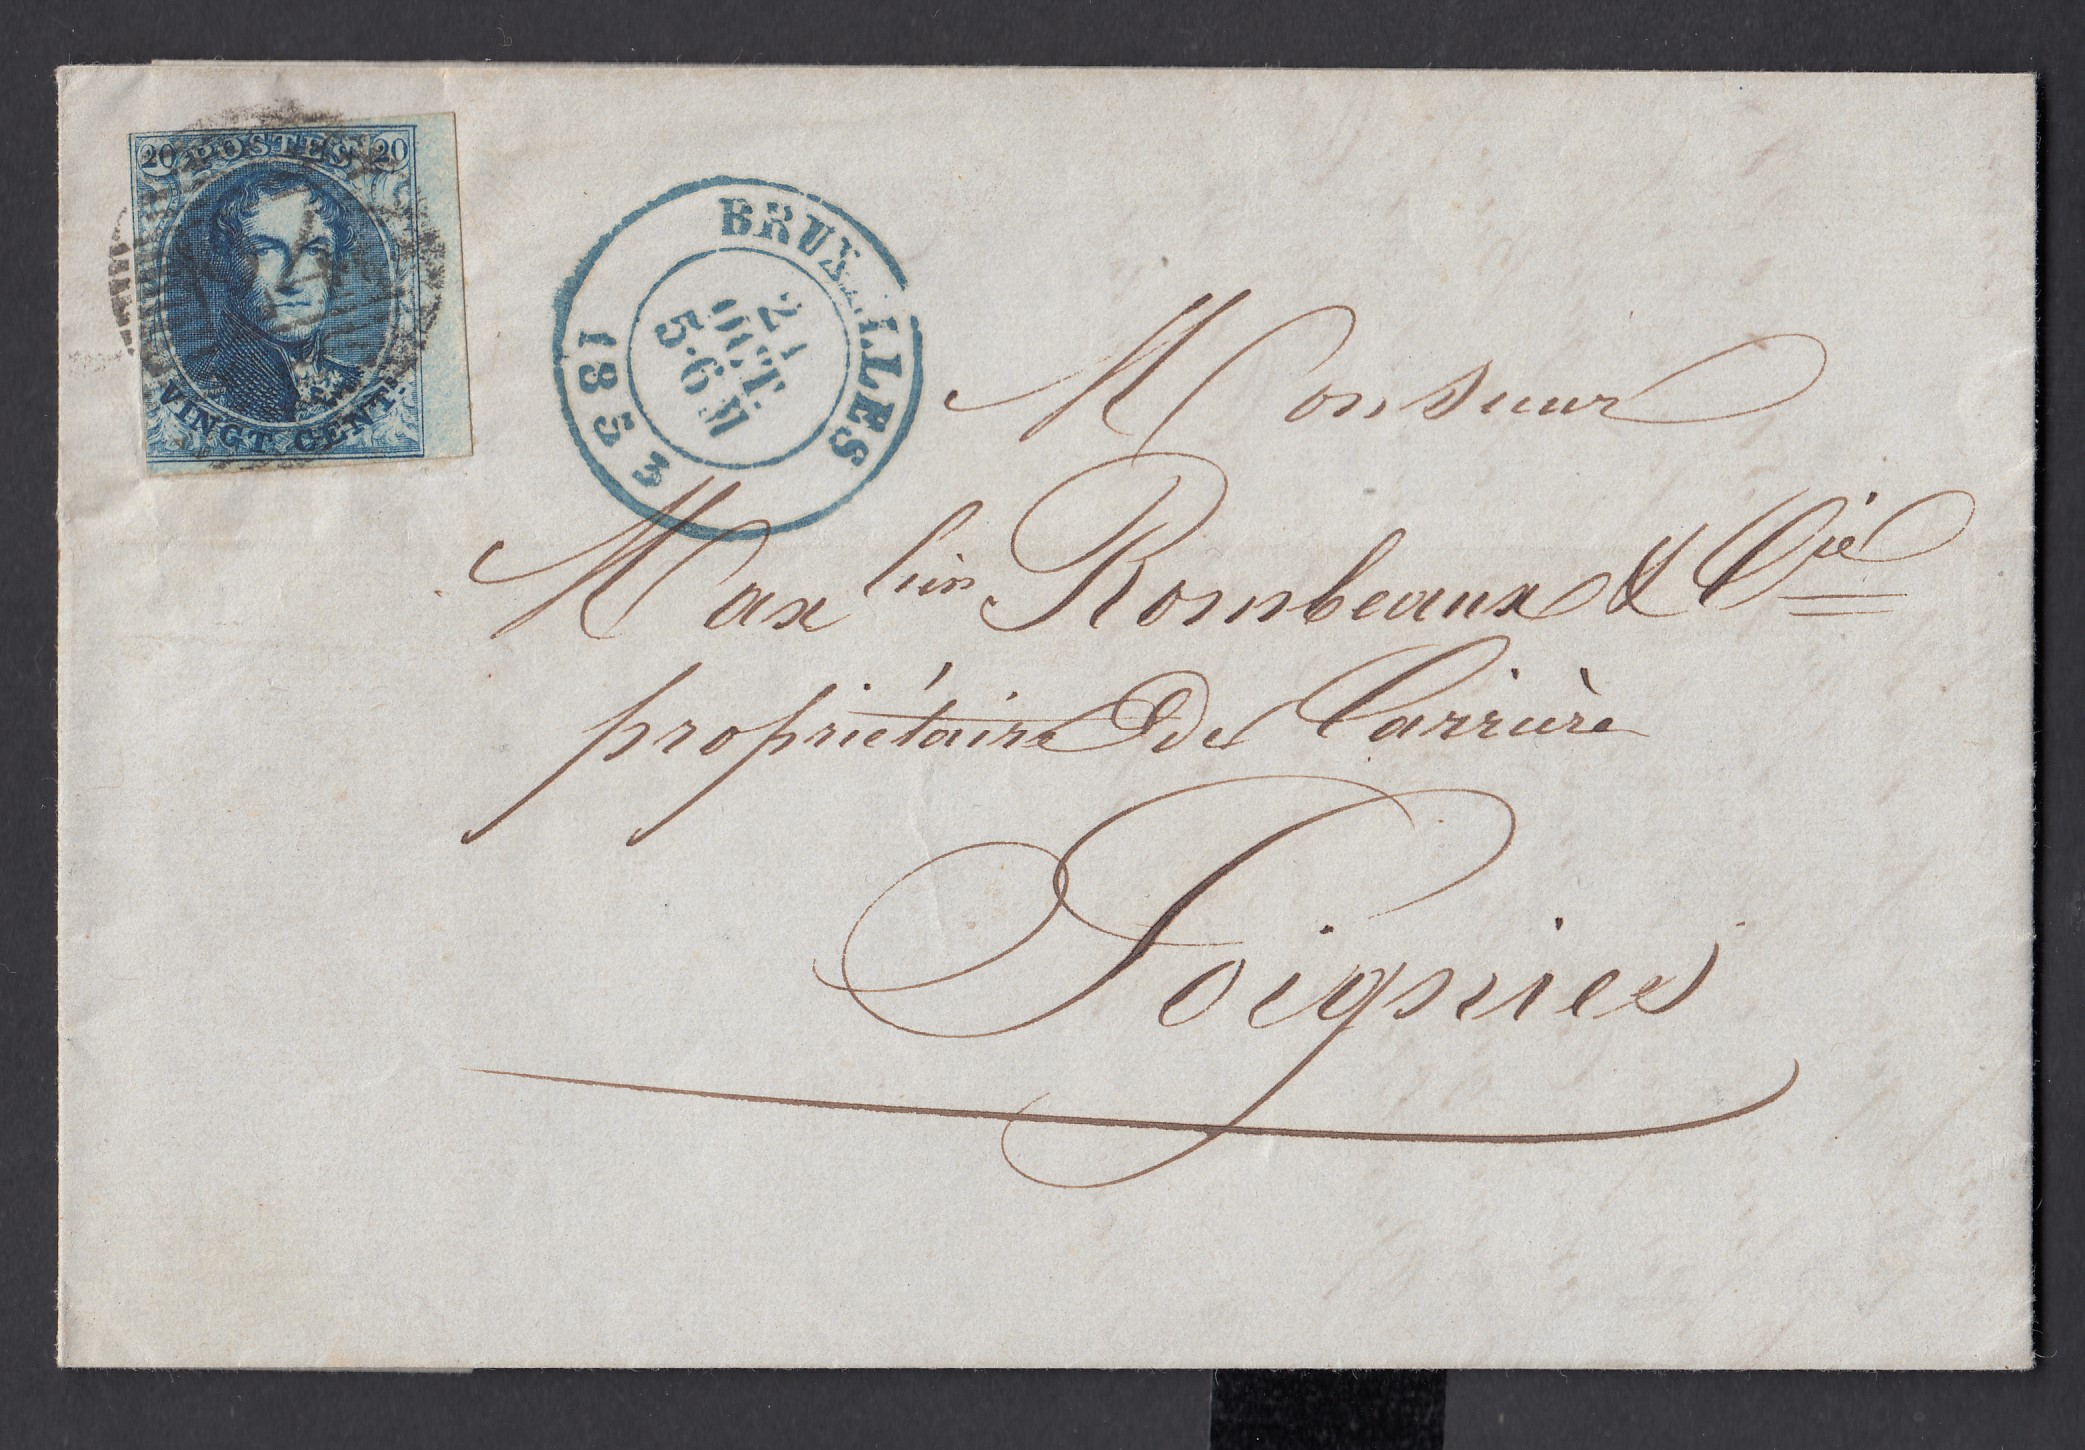 20 POSTES 20
VINGT CENTS.
BRUXELLES
21
OCT.
5-6 M
1853
Monsieur
Max lin Rombeaux & Cie
propriétaire de Carrière
Soignies